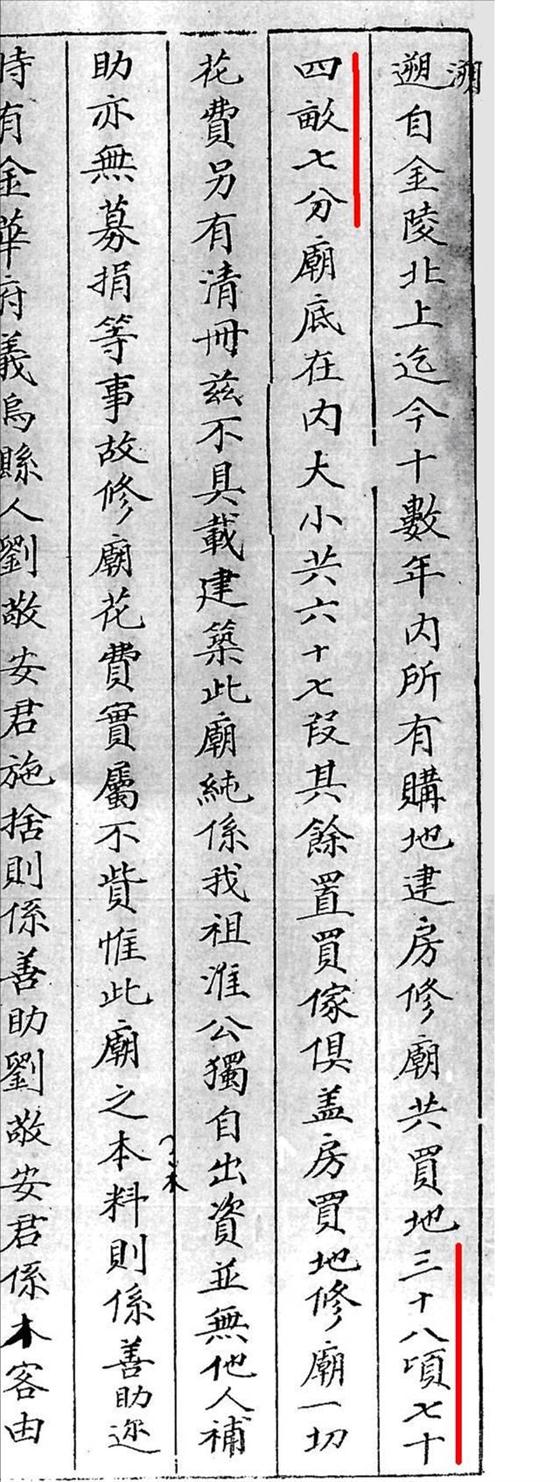 遡自金陵北上迄今十數年内所有購地建房修廟共買地三十八頃七十
溯
四畝七分廟底在内大小共六十七段其餘置買傢俱盖房買地修廟一切
花費另有清冊兹不具載建築此廟純係我祖淮公獨自出資並無他人補
助亦無募捐等事故修廟花費實屬不貲惟此廟之本料則係善助迩
木
時有金華府義烏縣人劉敬安君施捨則係善助劉敬安君係木客由